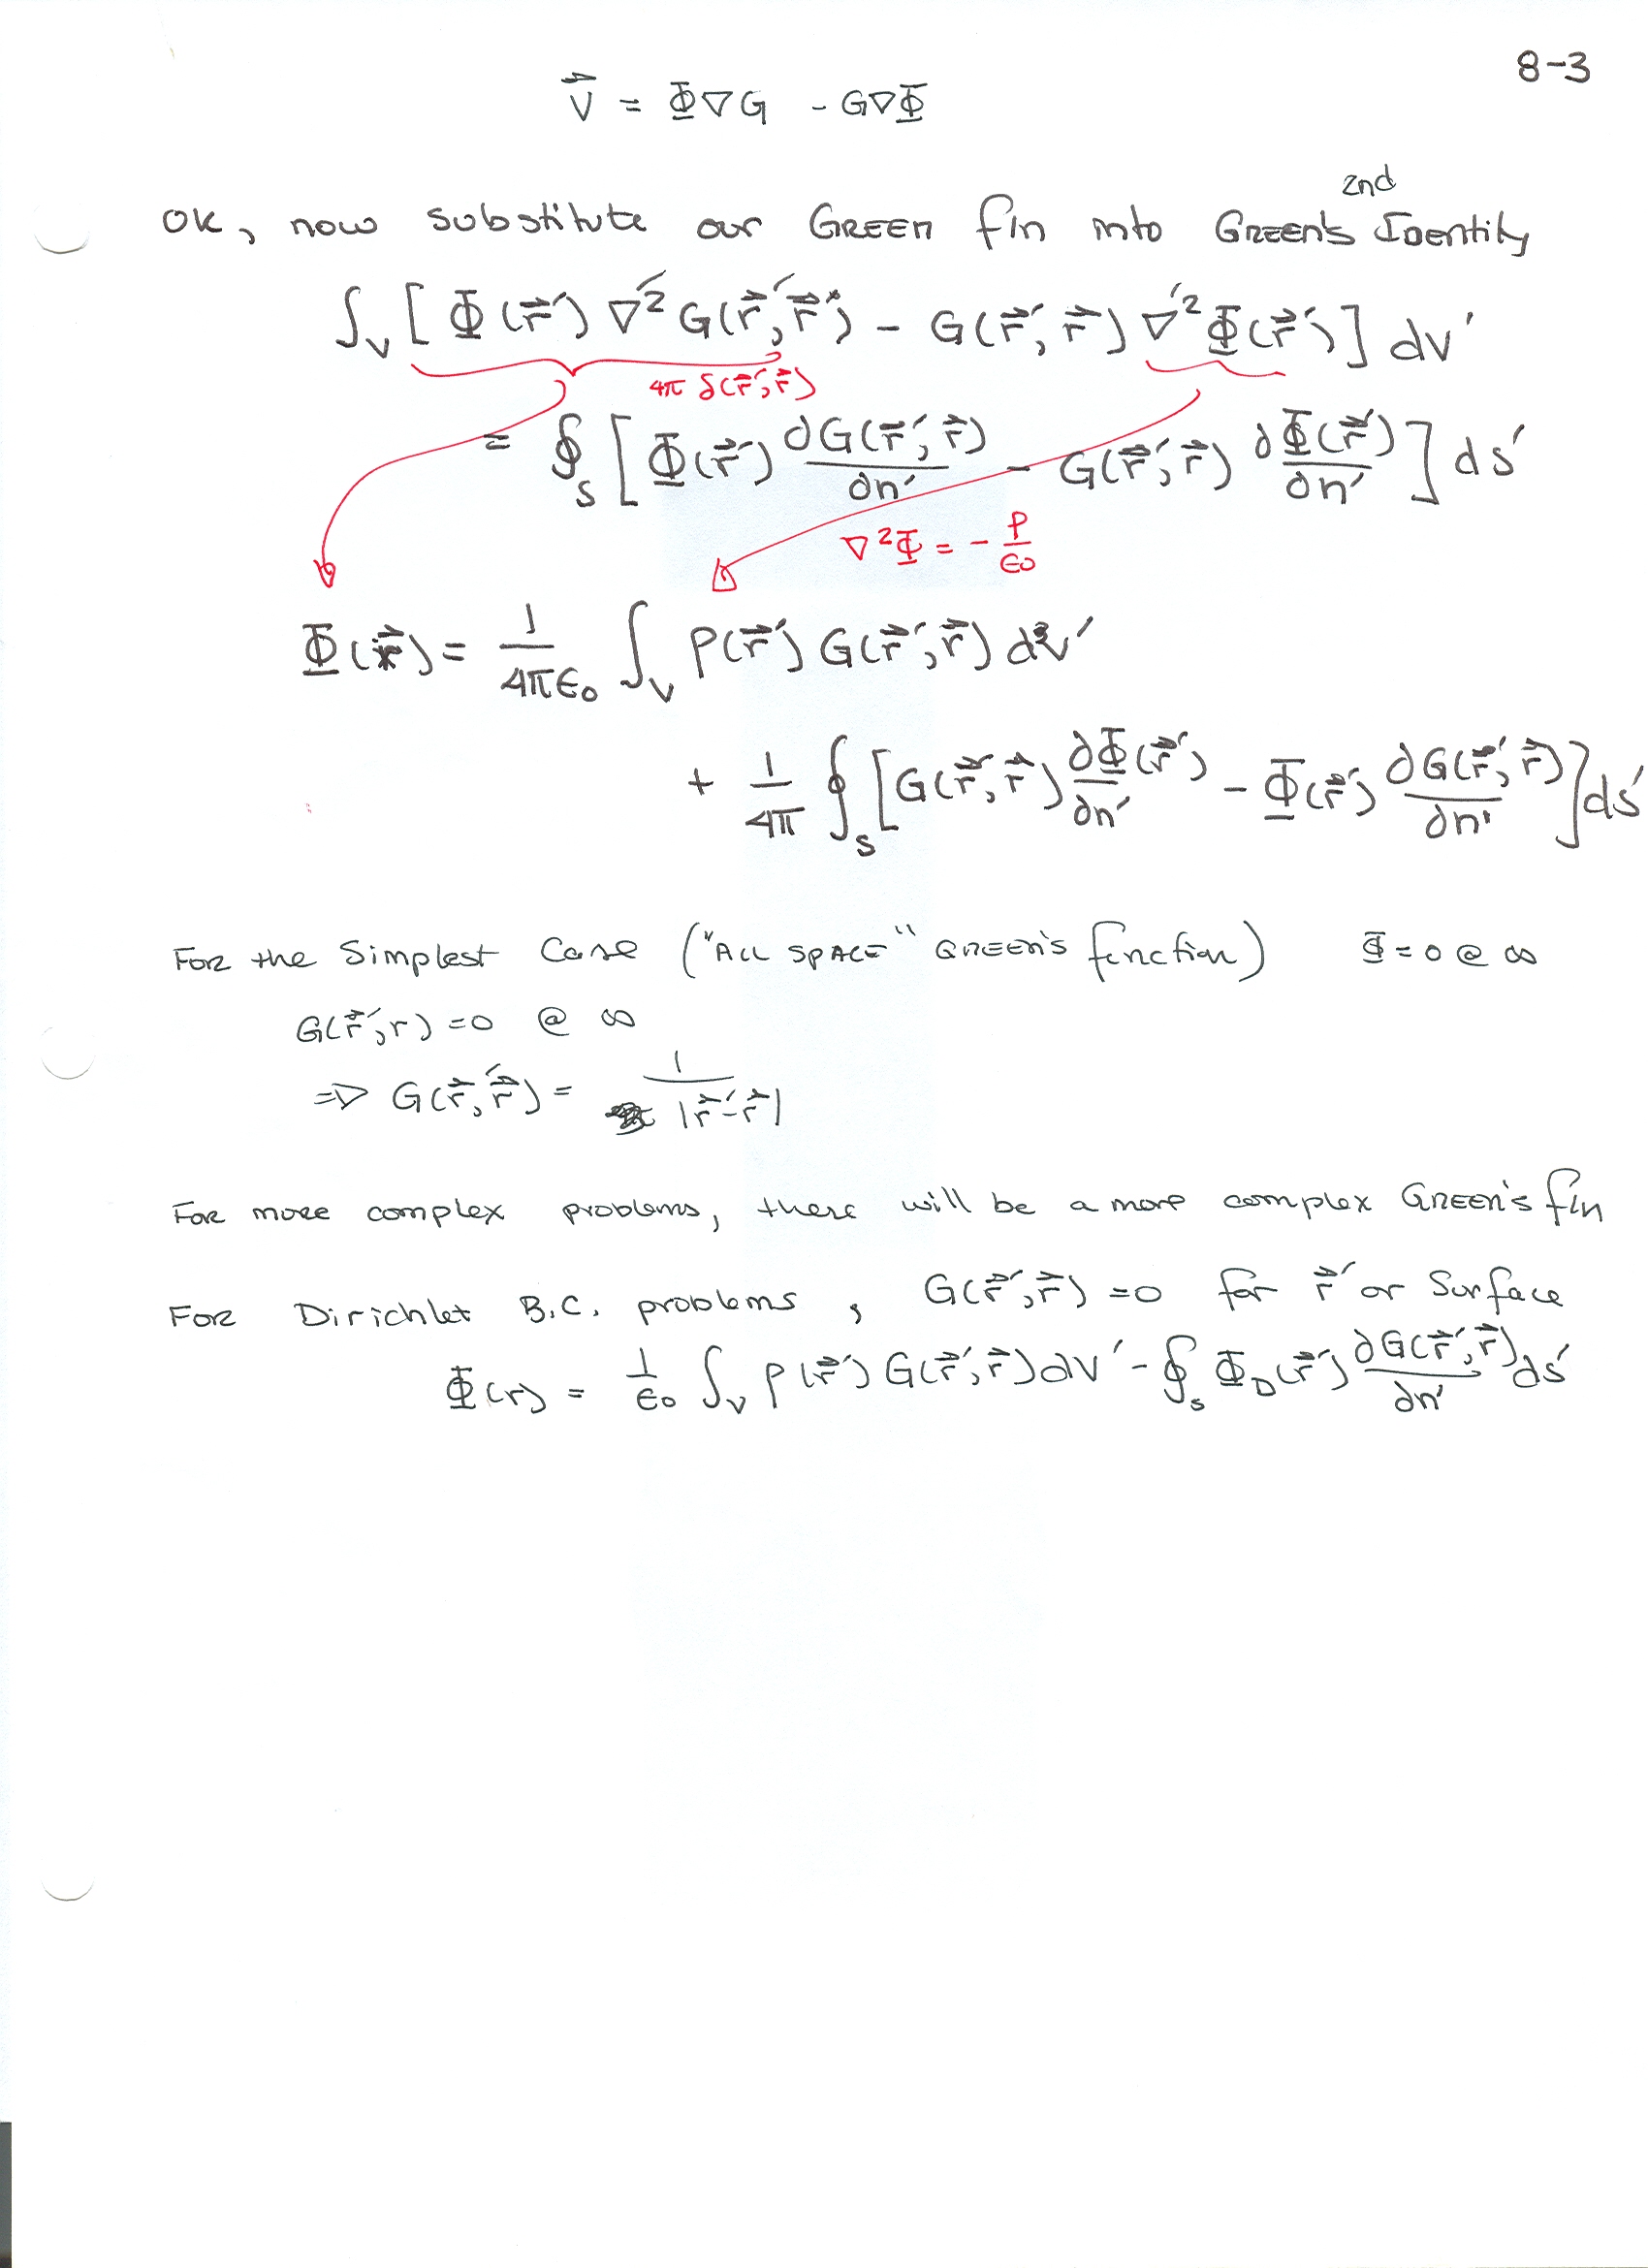 8-3
V⃗ = Φ∇G - G∇Φ
OK, now substitute our GREEN fcn into GREEN's 2nd Identity
∫_V [Φ(r⃗′) ∇′² G(r⃗′, r⃗) - G(r⃗′, r⃗) ∇′² Φ(r⃗′)] dv′
4π δ(r⃗′, r⃗)
= ∮_S [Φ(r⃗′) ∂G(r⃗′, r⃗)/∂n′ - G(r⃗′, r⃗) ∂Φ(r⃗′)/∂n′] ds′
∇²Φ = - ρ/ε₀
Φ(r⃗) = 1/4πε₀ ∫_V ρ(r⃗′) G(r⃗′, r⃗) dv′
+ 1/4π ∮_S [G(r⃗′, r⃗) ∂Φ(r⃗′)/∂n′ - Φ(r⃗′) ∂G(r⃗′, r⃗)/∂n′] ds′
FOR the Simplest Case ("ALL SPACE" GREEN's function) Φ = 0 @ ∞
G(r⃗′, r) = 0 @ ∞
⇒ G(r⃗, r⃗′) = 1/|r⃗′ - r⃗|
FOR more complex problems, there will be a more complex GREEN's fcn
FOR Dirichlet B.C. problems, G(r⃗′, r⃗) = 0 for r⃗′ or Surface
Φ(r) = 1/ε₀ ∫_V ρ(r⃗′) G(r⃗′, r⃗) dV′ - ∮_S Φ_D(r⃗′) ∂G(r⃗′, r⃗)/∂n′ ds′